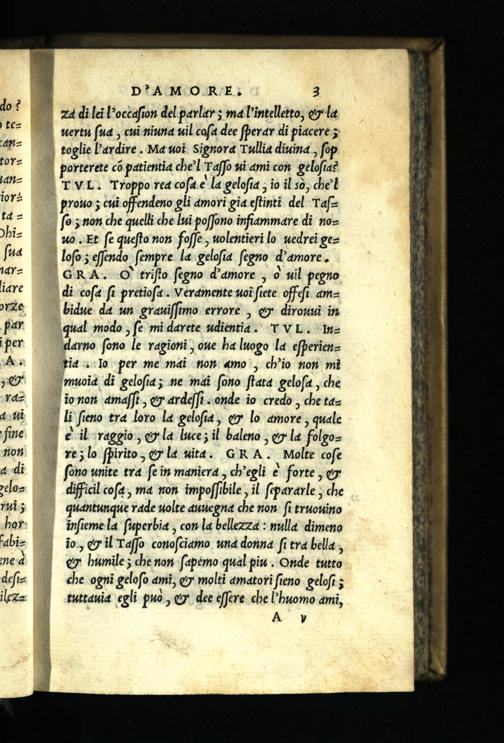 D'AMORE. 3
za di lei l'occasion del parlar; ma l'intelletto, & la
uertu sua, cui niuna uil cosa dee sperar di piacere;
toglie l'ardire. Ma uoi Signora Tullia diuina, sop
porterete cõ patientia che'l Tasso ui ami con gelosia?
TVL. Troppo rea cosa è la gelosia, io il sò, che'l
prouo; cui offendeno gli amori gia estinti del Tas=
so; non che quelli che lui possono infiammare di no=
uo. Et se questo non fosse, uolentieri lo uedrei ge=
loso; essendo sempre la gelosia segno d'amore.
GRA. Ò tristo segno d'amore, ò uil pegno
di cosa si pretiosa. Veramente uoi siete offesi am=
bidue da un grauissimo errore, & dirouui in
qual modo, se mi darete udientia. TVL. In=
darno sono le ragioni, oue ha luogo la esperien=
tia. Io per me mai non amo, ch'io non mi
muoia di gelosia; ne mai sono stata gelosa, che
io non amassi, & ardessi. onde io credo, che ta=
li sieno tra loro la gelosia, & lo amore, quale
è il raggio, & la luce; il baleno, & la folgo=
re; lo spirito, & la uita. GRA. Molte cose
sono unite tra se in maniera, ch'egli è forte, &
difficil cosa, ma non impossibile, il separarle, che
quantunque rade uolte auuegna che non si truouino
insieme la superbia, con la bellezza: nulla dimeno
io, & il Tasso conosciamo una donna si tra bella,
& humile; che non sapemo qual piu. Onde tutto
che ogni geloso ami, & molti amatori sieno gelosi;
tuttauia egli può, & dee essere che l'huomo ami,
A v